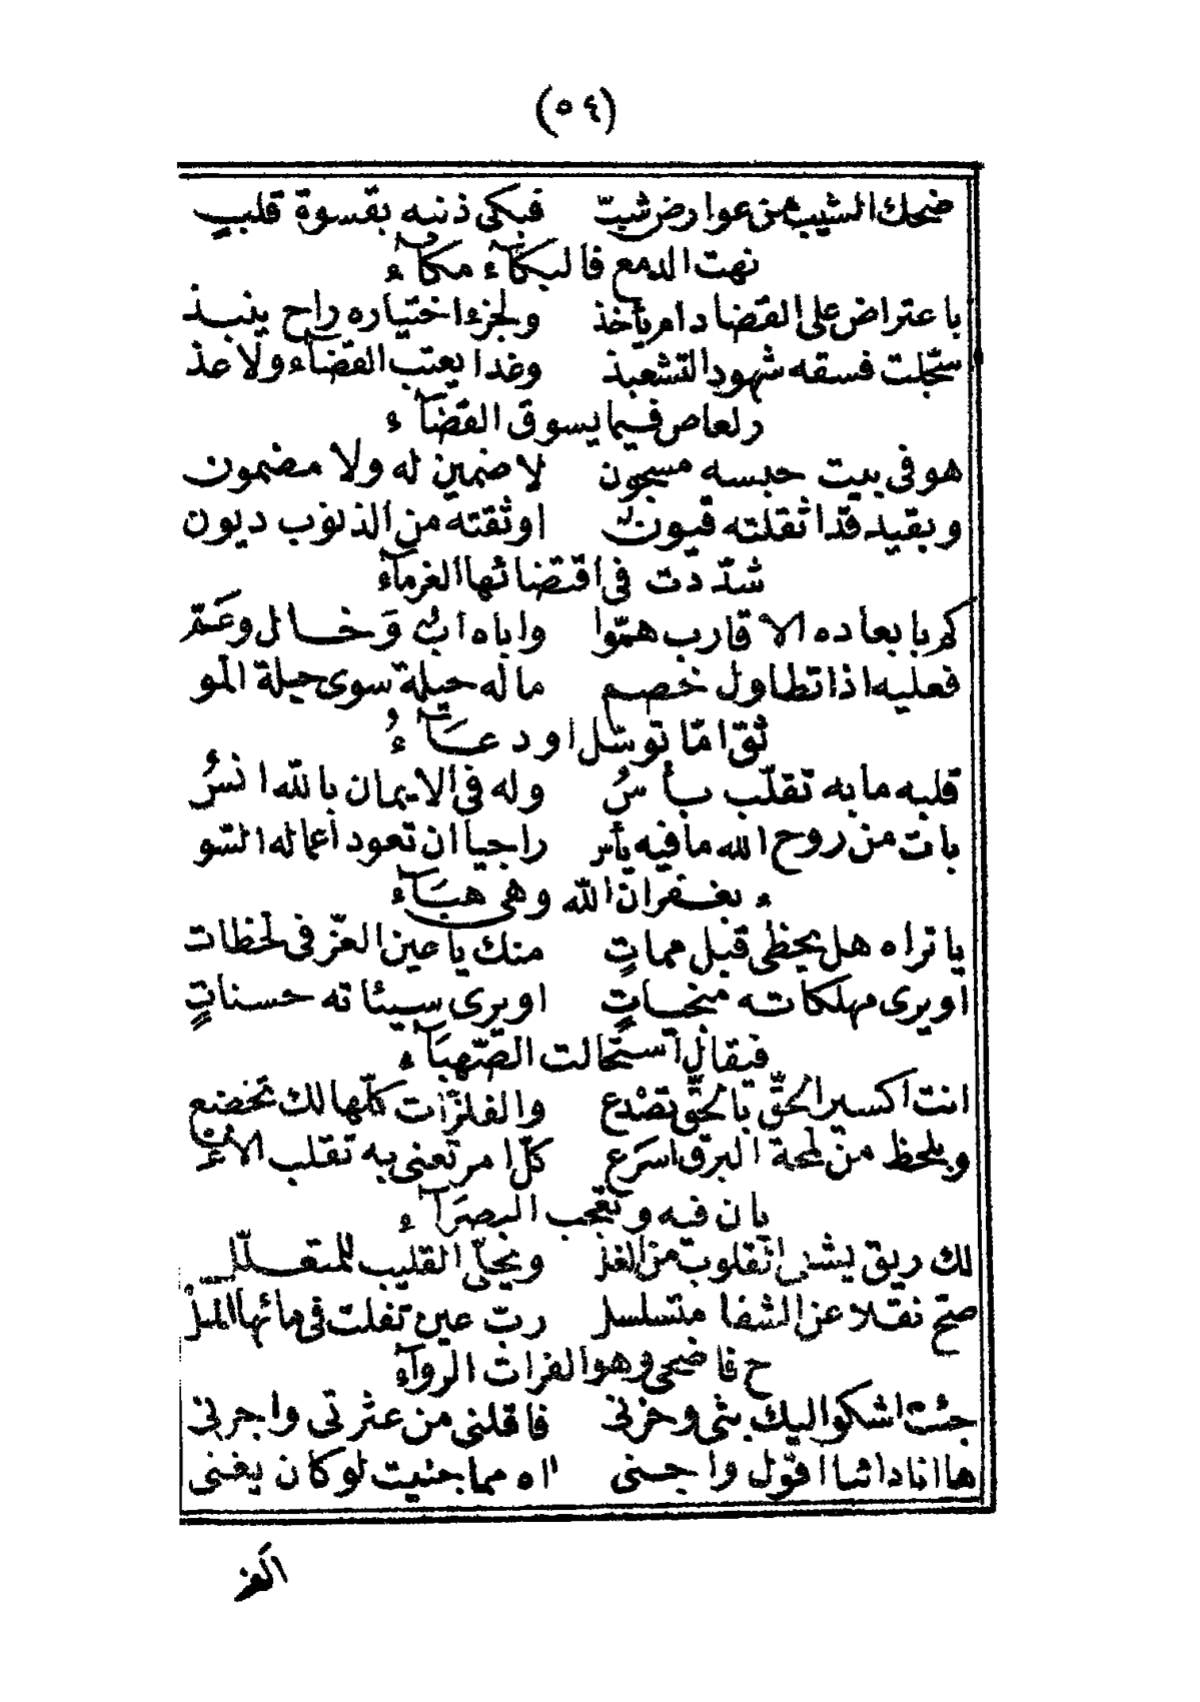 (٥٤)
ضحك الشيب من عوارض شيب فبكى ذنبه بقسوة قلب
نهت الدمع فالبكآء مكآء
باعتراض على القضا دام يأخذ ولجزء اختياره راح ينبذ
سجّلت فسقه شهود التشعبذ وغدا يعتب القضآء ولا عذ
ر لعاص فيما يسوق القضآء
هو في بيت حبسه مسجون لا ضمين له ولا مضمون
وبقيد قد اثقلته قيون اوثقته من الذنوب ديون
شدّدت في اقتضائها الغرمآء
كم بابعاده الاقارب همّوا واباه اب وَخال وعَمّ
فعليه اذا تطاول خصم ماله حيلة سوى حيلة المو
ثق امّا توسّل او دعَآءُ
قلبه مابه تقلّب بأسُ وله في الايمان بالله انسُ
بات من روح الله مافيه يأس راجيا ان تعود اعماله السّو
ء بغفران الله وهى هبَآء
يا تراه هل يحظى قبل مماتٍ منك يا عين العزّ في لحظات
اويرى مهلكاته منجياتٍ اويرى سيئاته حسناتٍ
فيقال استحالت الصّهبَآء
انت اكسير الحقّ بالحقّ تصْدع والفلزّات كلّها لك تخضع
وبلحظ من لمحة البرق اسرَع كلّ امر تعنى به تقلب الاعْـ
يان فيه وتعجب البصرَآء
لك ريق يشفى القلوب من الغل ويحلّى القليب للمتعلّل
صحّ نقلا عن الشفا متسلسل ربّ عين تفلت في مائها المل
ح فاضحى وهو الفرات الروآء
جئت اشكو اليك بثى وحزنى فاقلنى من عثرتى واجرنى
ها انا دائما اقول واجنى اه مما جنيت لو كان يغنى